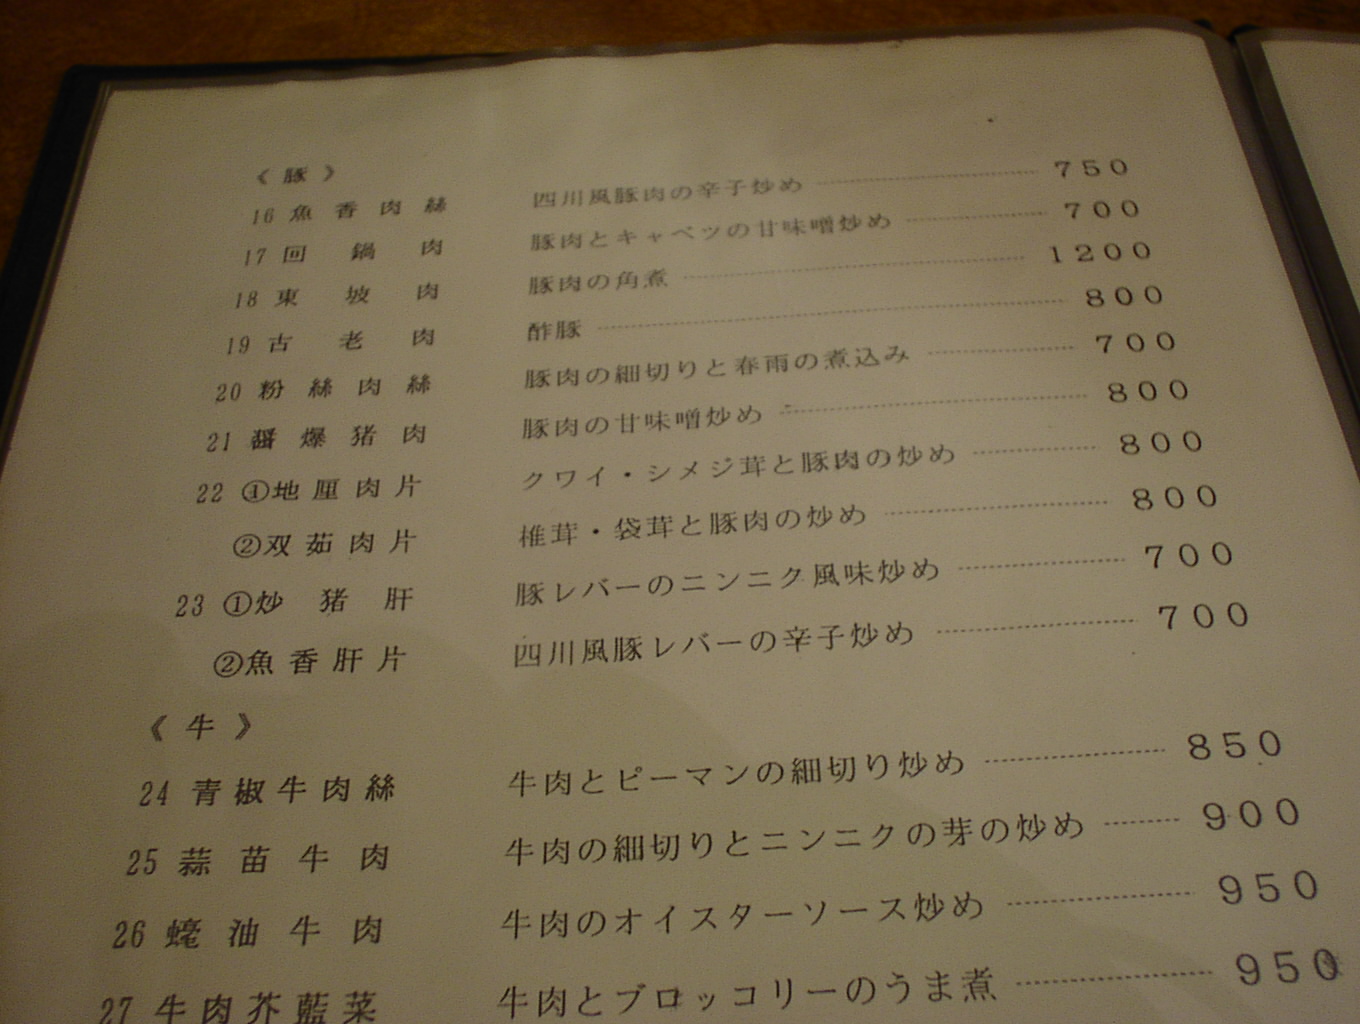 《豚》
16 魚香肉絲 四川風豚肉の辛子炒め 750
17 回鍋肉 豚肉とキャベツの甘味噌炒め 700
18 東坡肉 豚肉の角煮 1200
19 古老肉 酢豚 800
20 粉絲肉絲 豚肉の細切りと春雨の煮込み 700
21 醤爆猪肉 豚肉の甘味噌炒め 800
22 ①地厘肉片 クワイ・シメジ茸と豚肉の炒め 800
②双茹肉片 椎茸・袋茸と豚肉の炒め 800
23 ①炒猪肝 豚レバーのニンニク風味炒め 700
②魚香肝片 四川風豚レバーの辛子炒め 700
《牛》
24 青椒牛肉絲 牛肉とピーマンの細切り炒め 850
25 蒜苗牛肉 牛肉の細切りとニンニクの芽の炒め 900
26 蠔油牛肉 牛肉のオイスターソース炒め 950
27 牛肉芥藍菜 牛肉とブロッコリーのうま煮 950